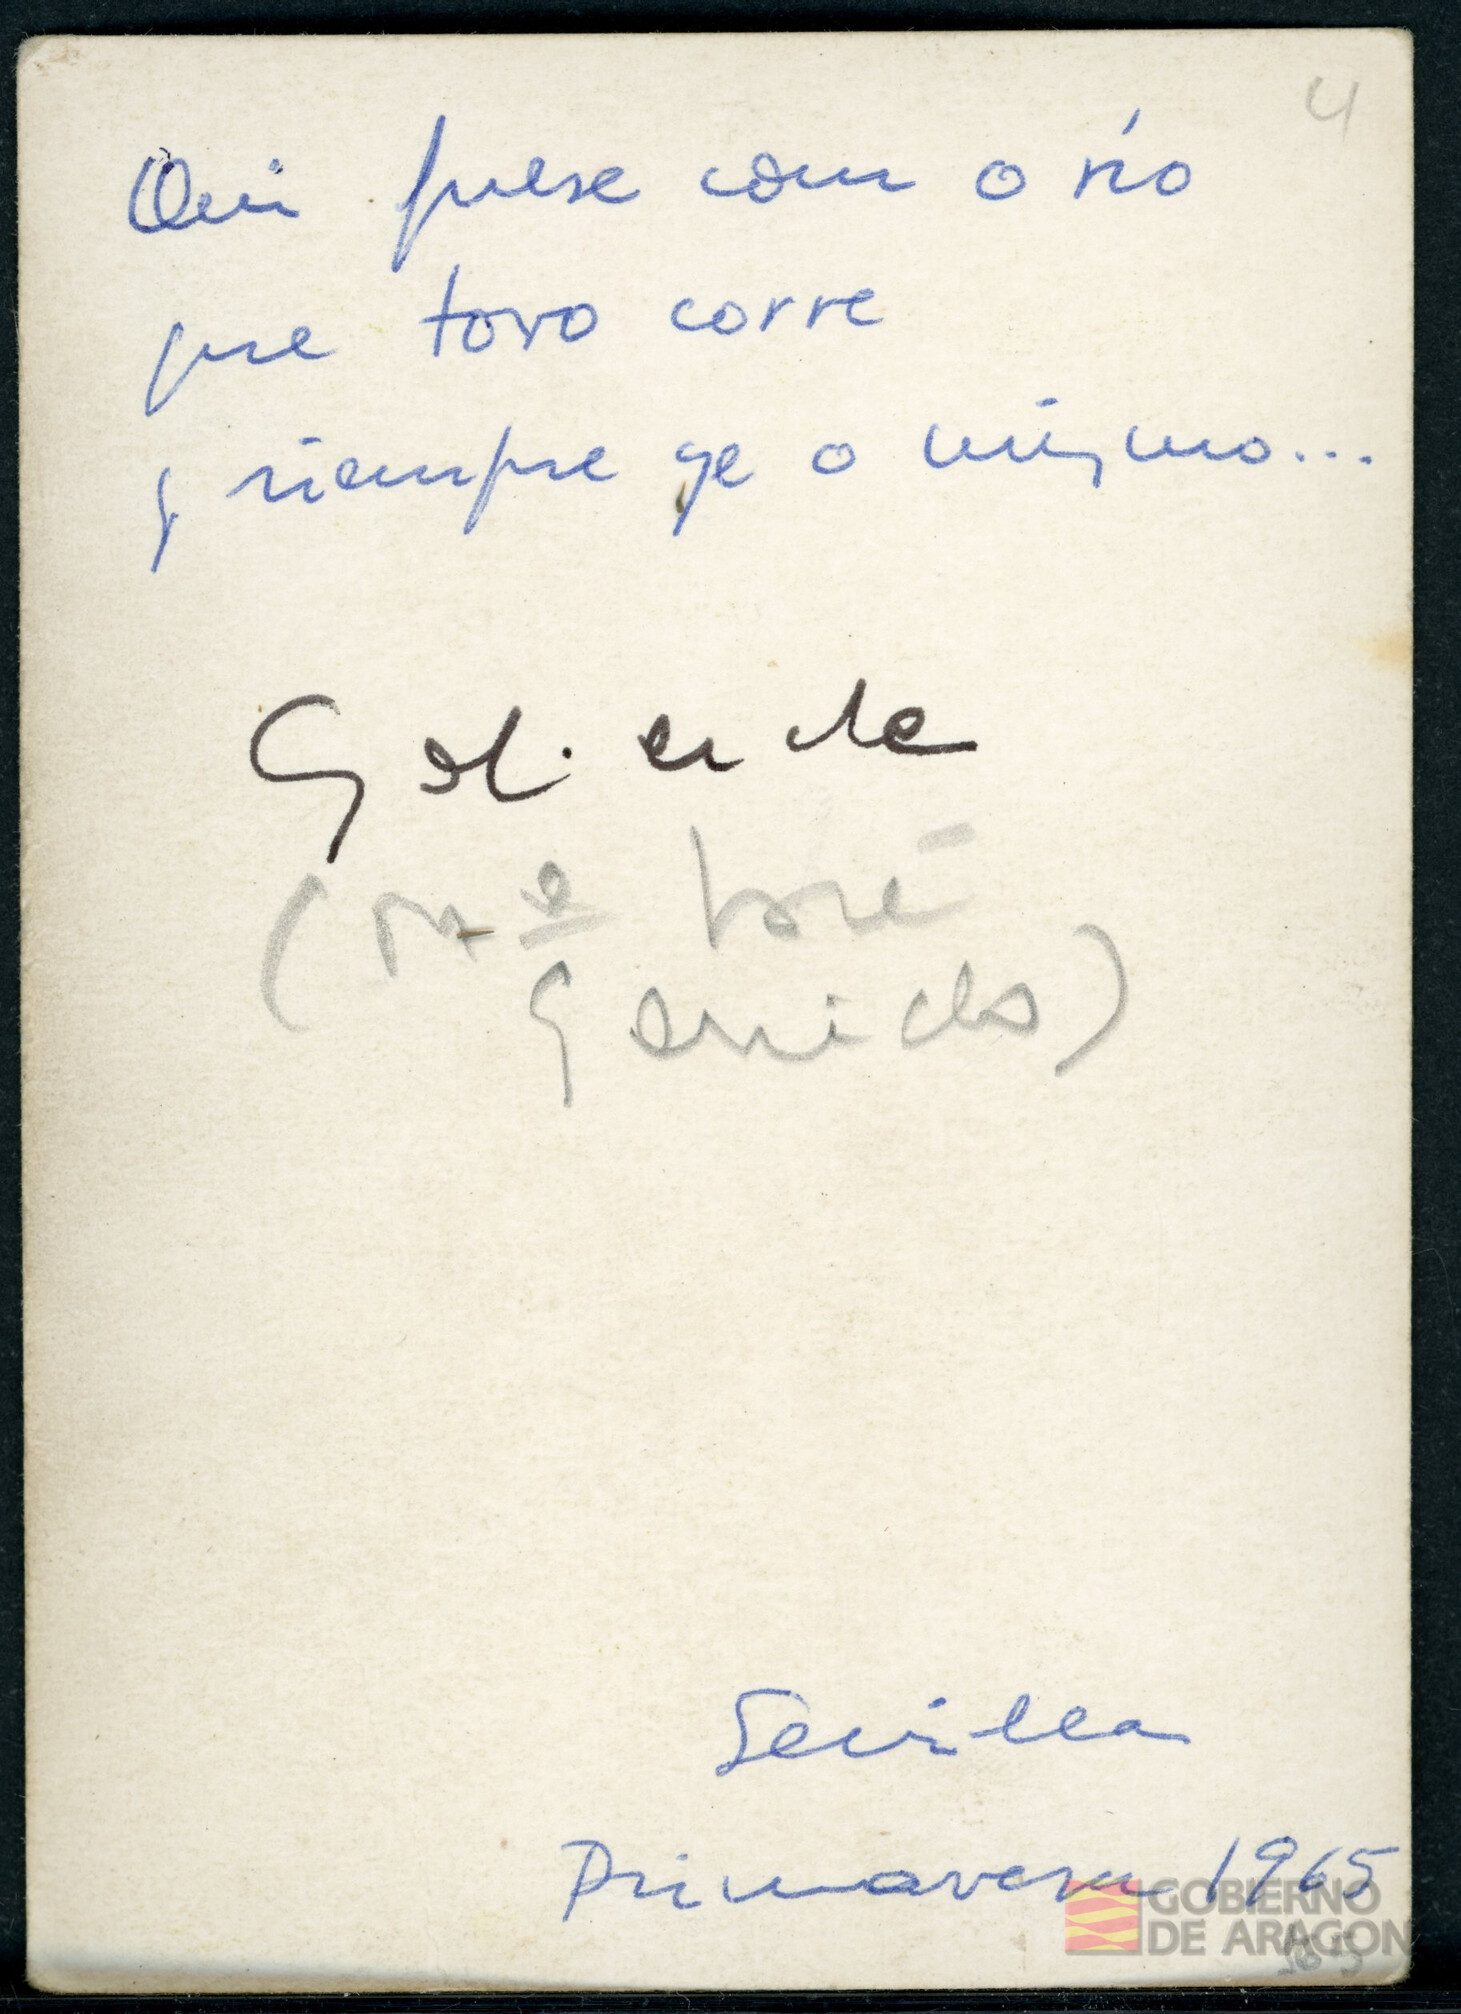 4
Qui fuese com o río
que tovo corre
y siempre ye o mismo...
(Mª José
Garrido)
Sevilla
Primavera 1965
GOBIERNO
DE ARAGON